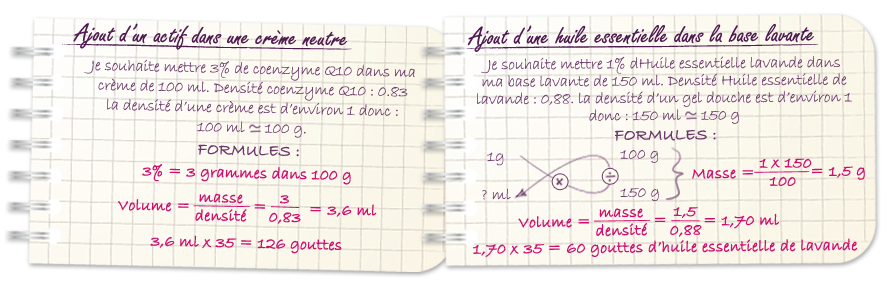 Ajout d'un actif dans une crème neutre
Je souhaite mettre 3% de coenzyme Q10 dans ma
crème de 100 ml. Densité coenzyme Q10 : 0.83
la densité d'une crème est d'environ 1 donc :
100 ml ≃ 100 g.
FORMULES :
3% = 3 grammes dans 100 g
Volume = masse / densité = 3 / 0,83 = 3,6 ml
3,6 ml x 35 = 126 gouttes
Ajout d'une huile essentielle dans la base lavante
Je souhaite mettre 1% dHuile essentielle lavande dans
ma base lavante de 150 ml. Densité Huile essentielle de
lavande : 0,88. la densité d'un gel douche est d'environ 1
donc : 150 ml ≃ 150 g
FORMULES :
1g 100 g
x ÷
? ml 150 g
Masse = 1 x 150 / 100 = 1,5 g
Volume = masse / densité = 1,5 / 0,88 = 1,70 ml
1,70 x 35 = 60 gouttes d'huile essentielle de lavande